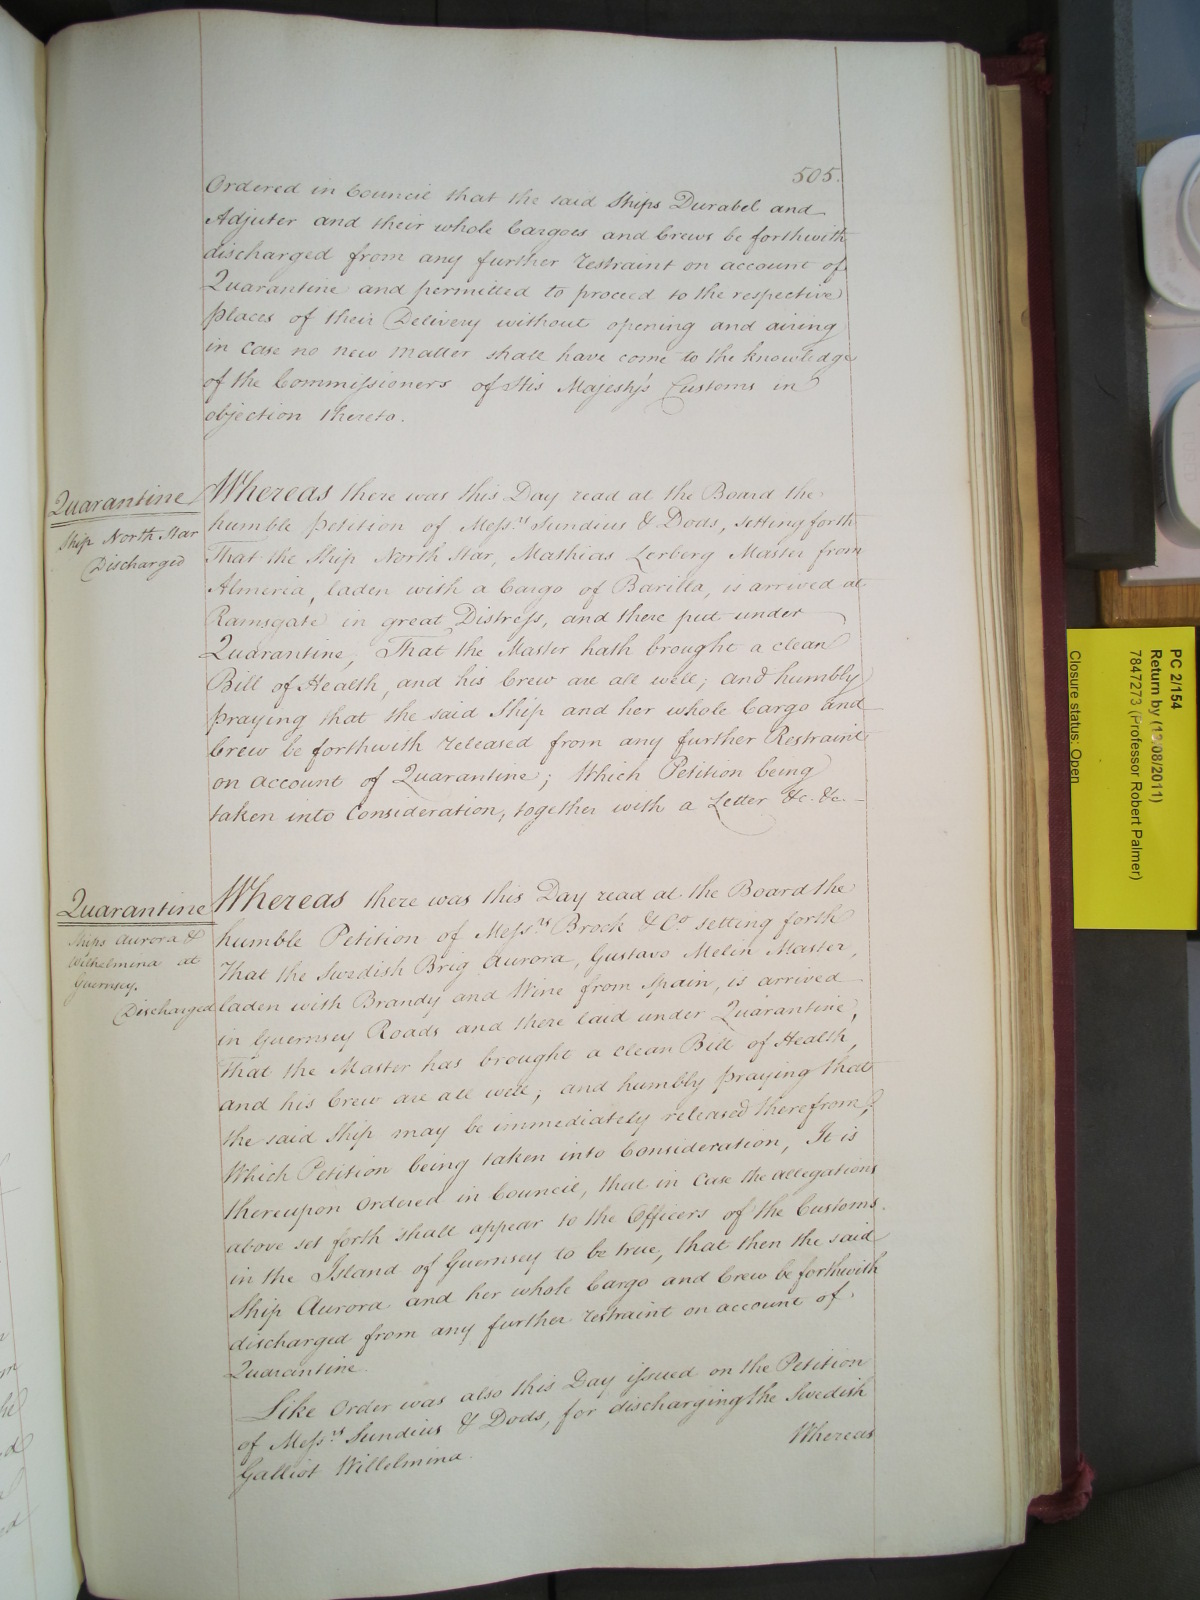 505.
Ordered in Council that the said Ships Durabel and
Adjuter and their whole Cargoes and Crews be forthwith
discharged from any further restraint on account of
Quarantine and permitted to proceed to the respective
places of their Delivery without opening and airing
in case no new matter shall have come to the knowledge
of the Commissioners of His Majesty's Customs in
objection thereto.
Quarantine
Ship North Star
Discharged
Whereas there was this Day read at the Board the
humble Petition of Messrs Sundius & Dods, setting forth
That the Ship North Star, Mathias Lerberg Master from
Almeria, laden with a Cargo of Barilla, is arrived at
Ramsgate in great Distress, and there put under
Quarantine, That the Master hath brought a clean
Bill of Health, and his Crew are all well; and humbly
praying that the said Ship and her whole Cargo and
Crew be forthwith released from any further Restraint
on account of Quarantine; Which Petition being
taken into Consideration, together with a Letter &c. &c.
Quarantine
Ships Aurora &
Wilhelmina at
Guernsey.
Discharged
Whereas there was this Day read at the Board the
humble Petition of Messrs Brock & Co. setting forth
That the Swedish Brig Aurora, Gustavo Melin Master,
laden with Brandy and Wine from Spain, is arrived
in Guernsey Roads and there laid under Quarantine,
That the Master has brought a clean Bill of Health,
and his Crew are all well; and humbly praying that
the said Ship may be immediately released therefrom;
Which Petition being taken into Consideration, It is
thereupon Ordered in Council, that in case the allegations
above set forth shall appear to the Officers of the Customs
in the Island of Guernsey to be true, that then the said
Ship Aurora and her whole Cargo and Crew be forthwith
discharged from any further restraint on account of
Quarantine.
Like Order was also this Day issued on the Petition
of Messrs Sundius & Dods, for discharging the Swedish
Galliot Willelmina.
Whereas
PC 2/154
Return by (1 /08/2011)
7847273 (Professor Robert Palmer)
Closure status: Open